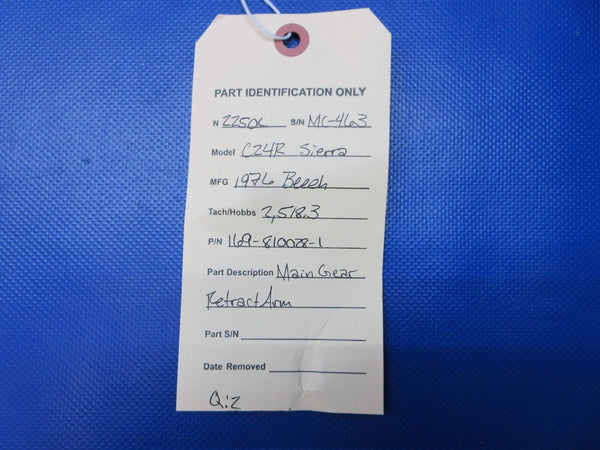 PART IDENTIFICATION ONLY
N 2250L S/N MC-463
Model C24R Sierra
MFG 1976 Beech
Tach/Hobbs 2,518.3
P/N 169-810028-1
Part Description Main Gear
Retract Arm
Part S/N
Date Removed
Q:2